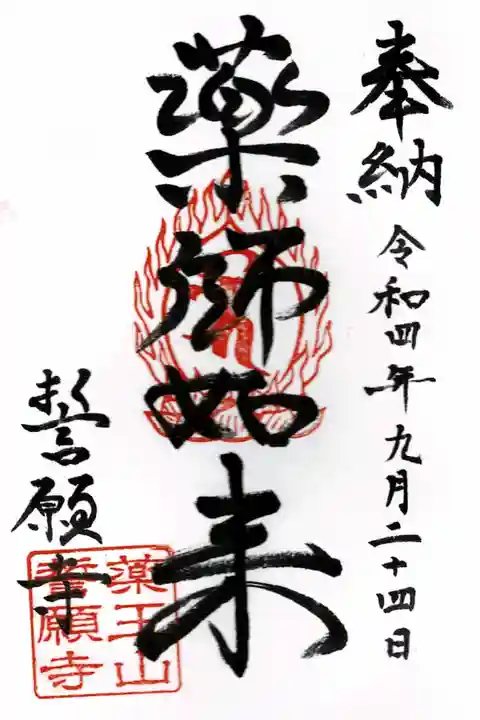 奉納
令和四年九月二十四日
薬師如来
誓願寺
薬王山
誓願寺